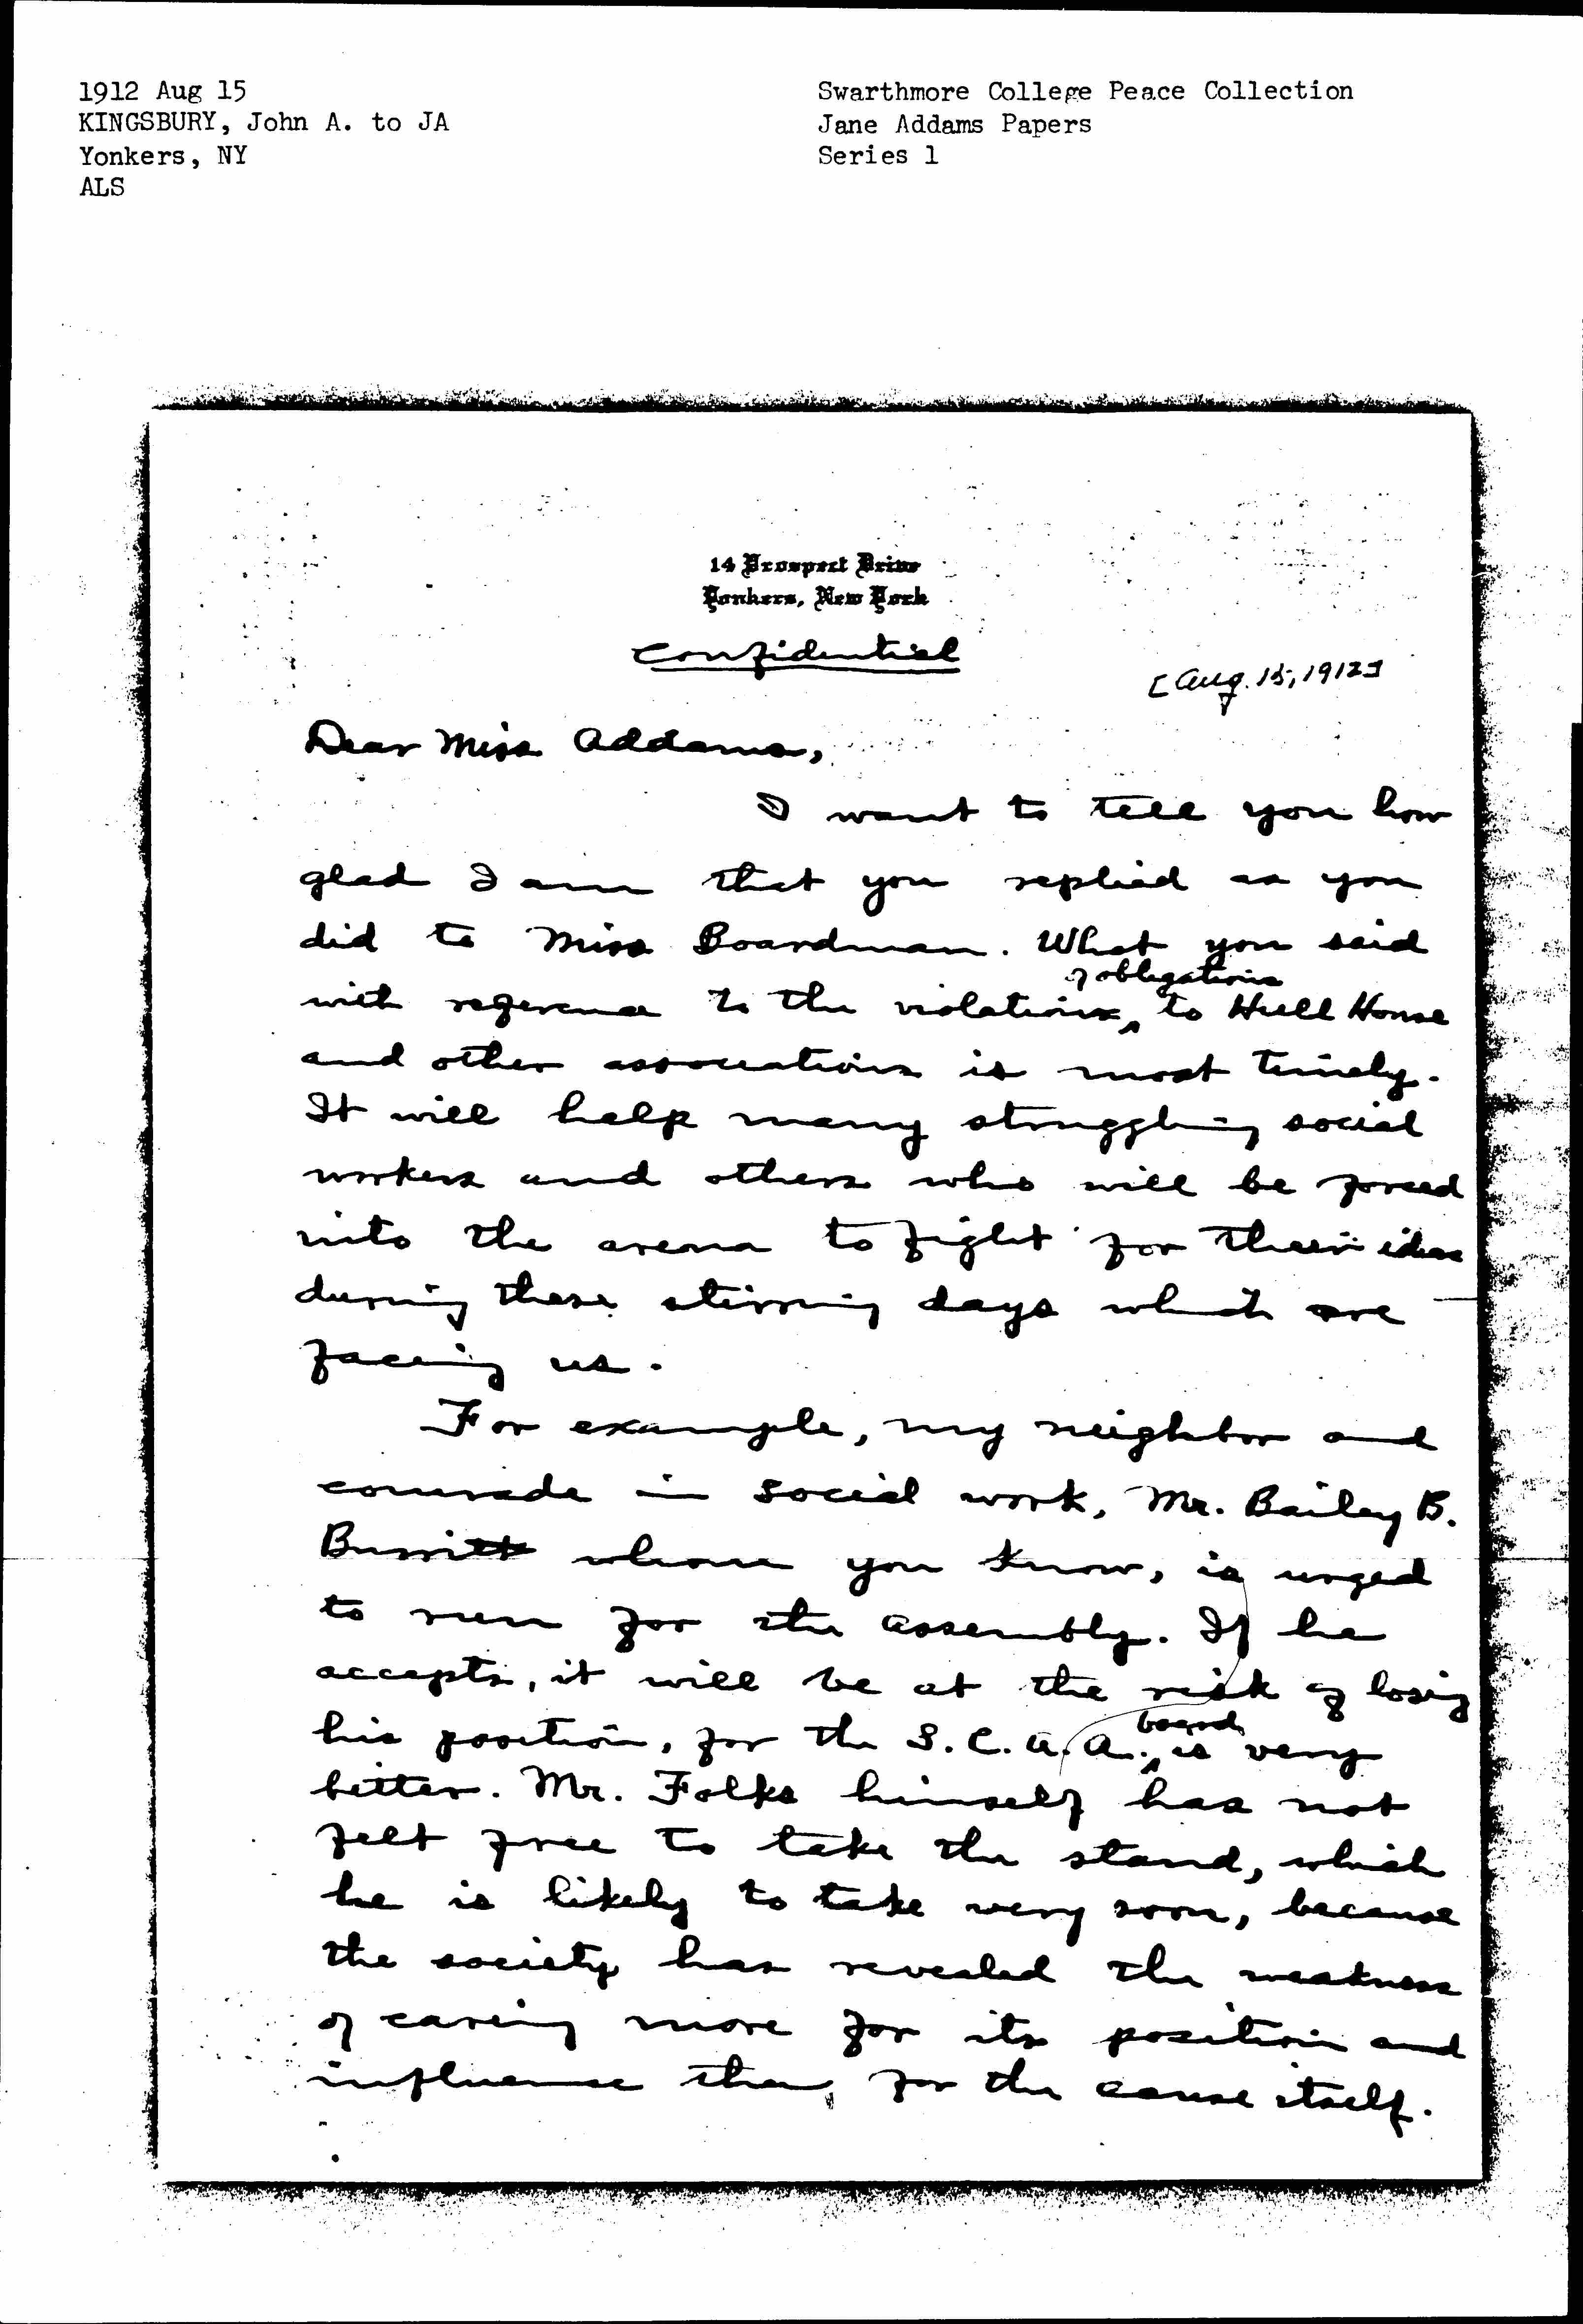 1912 Aug 15
KINGSBURY, John A. to JA
Yonkers, NY
ALS
Swarthmore College Peace Collection
Jane Addams Papers
Series 1
14 Prospect Drive
Yonkers, New York
Confidential
[Aug. 15, 1912]
Dear Miss Addams,
I want to tell you how
glad I am that you replied as you
did to Miss Boardman. What you said
of obligations
with reference to the violations to Hull House
and other associations is most timely.
It will help many struggling social
workers and others who will be forced
into the arena to fight for their ideas
during these stirring days which are
facing us.
For example, my neighbor and
comrade in social work, Mr. Bailey B.
Burritt whom you know, is urged
to run for the assembly. If he
accepts, it will be at the risk of losing
board
his position, for the S. C. A. A. is very
bitter. Mr. Folks himself has not
felt free to take the stand, which
he is likely to take very soon, because
the society has revealed the weakness
of caring more for its position and
influence than for the cause itself.